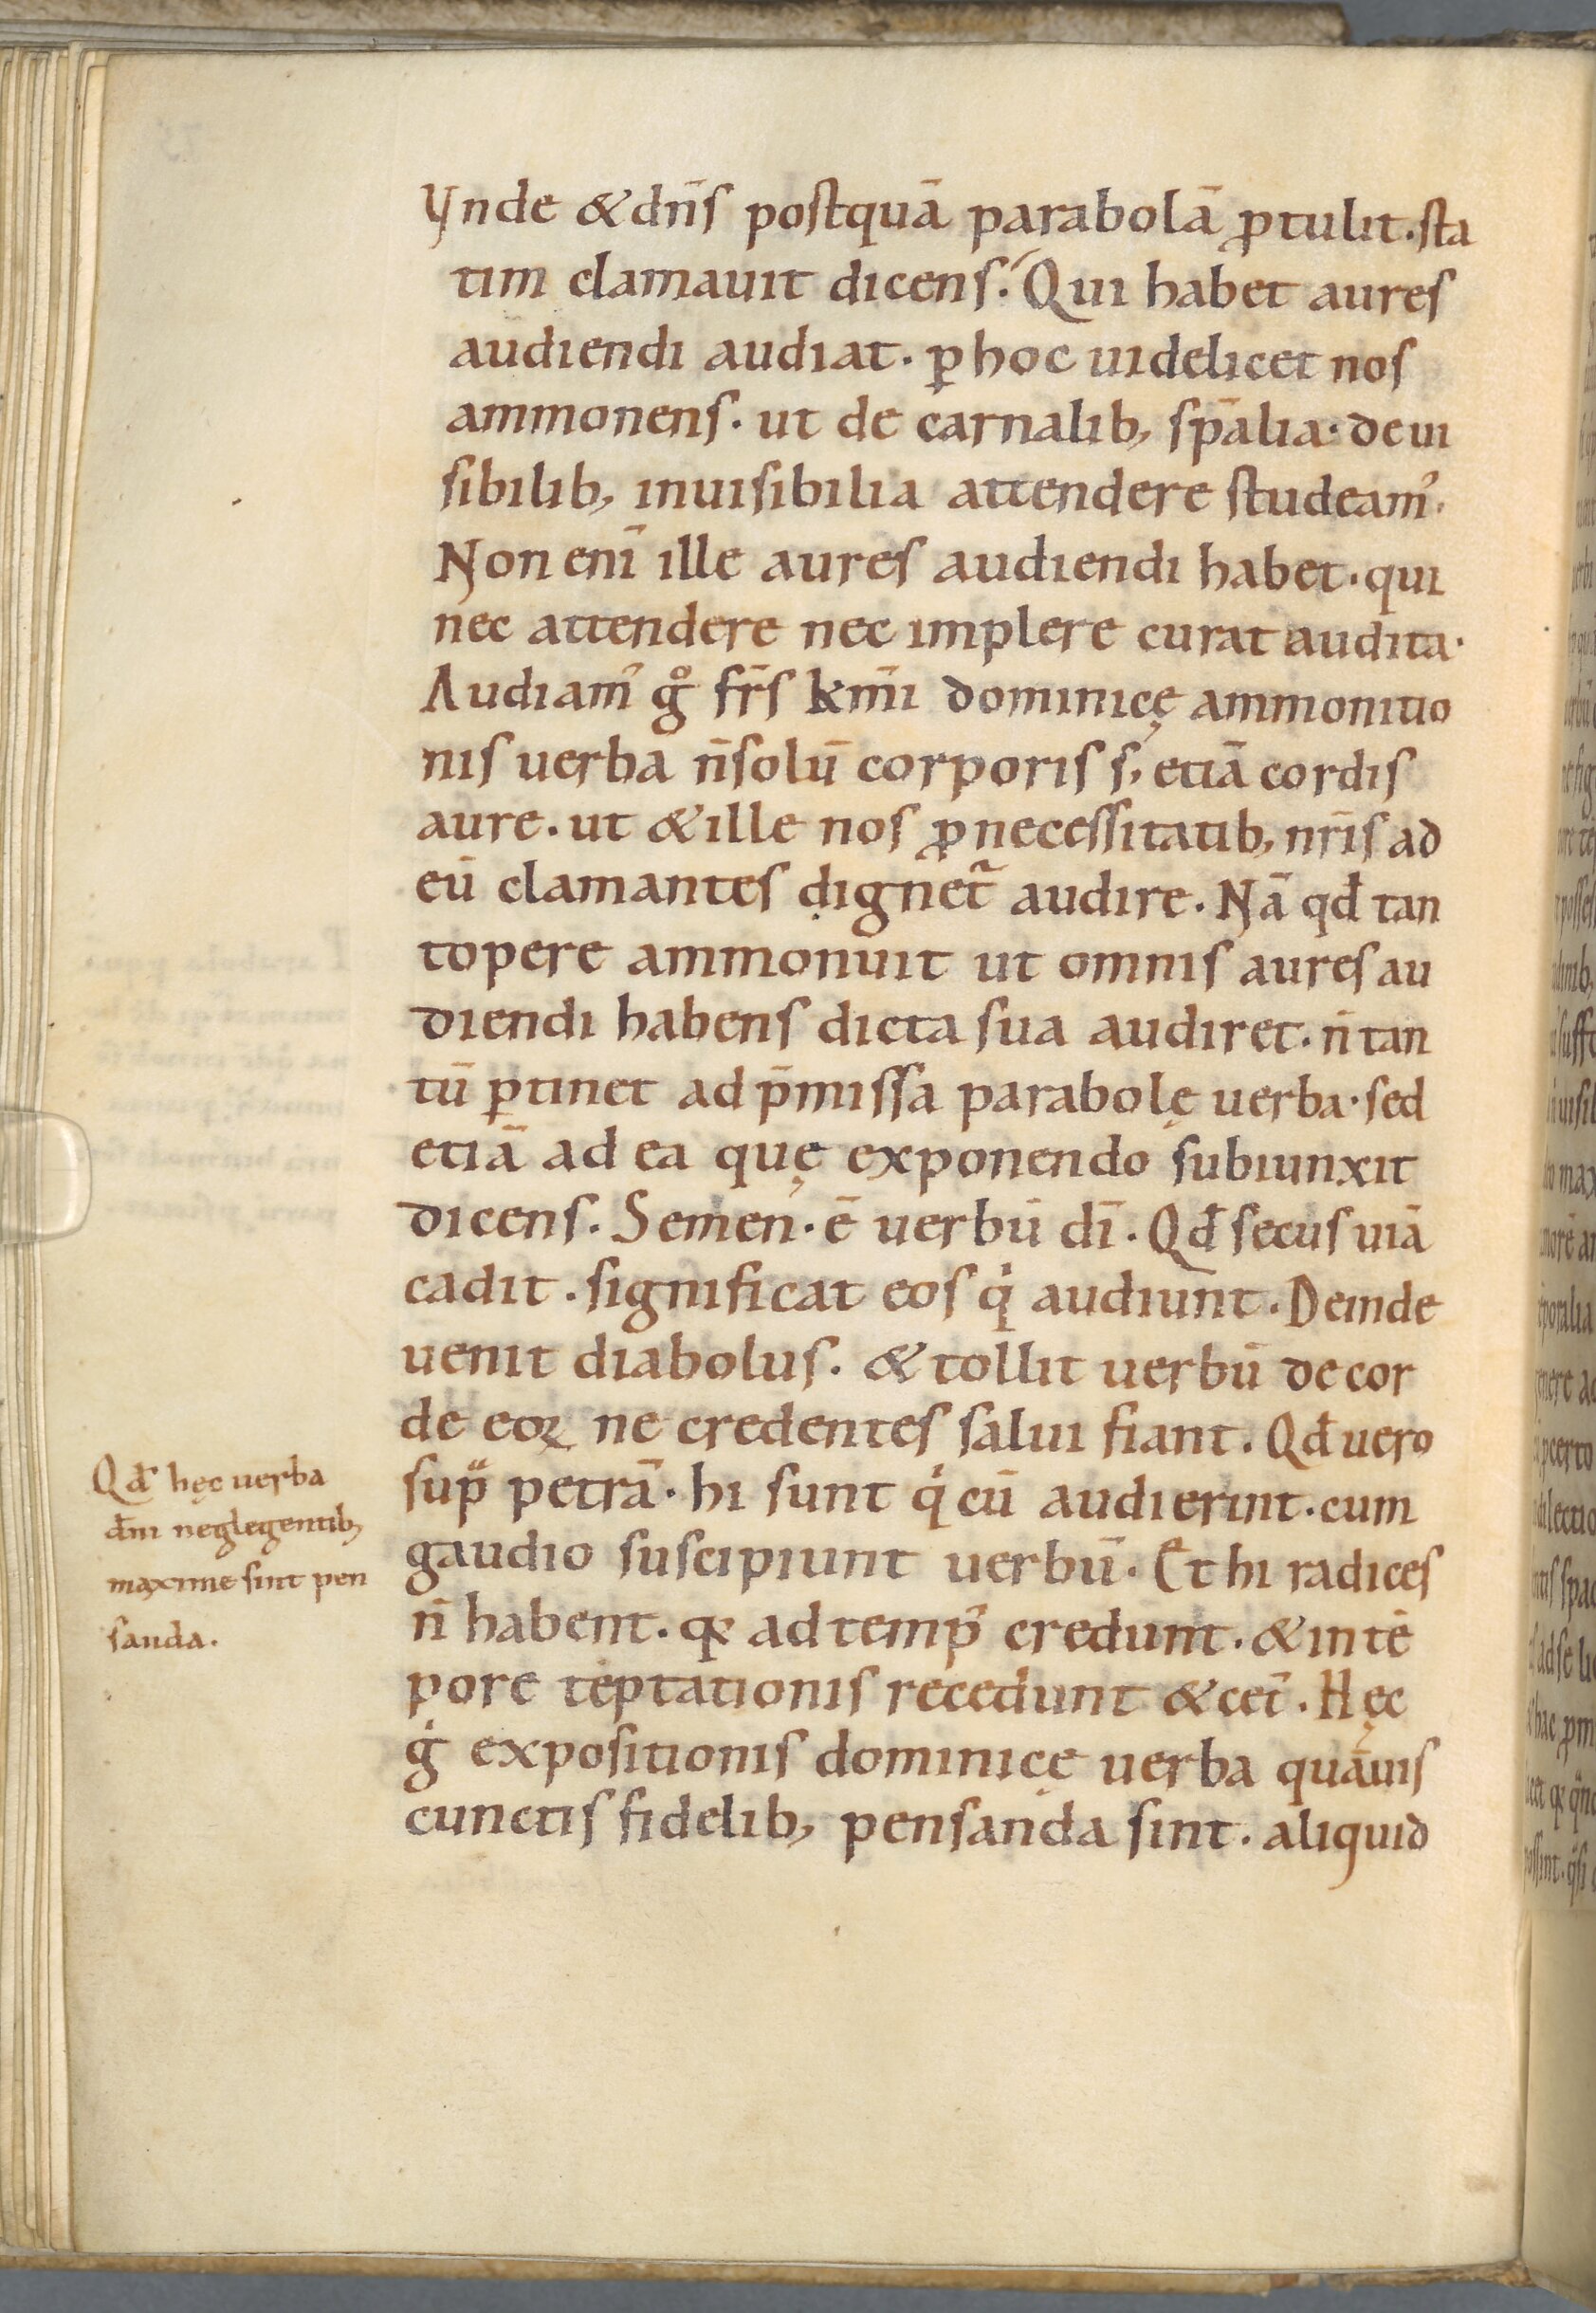 Vnde & dn̄s postquā parabolā ꝓtulit. sta
tim clamauit dicens. Qui habet aures
audiendi audiat. ꝑ hoc uidelicet nos
ammonens. ut de carnalib, sp̄alia. de ui
sibilib, inuisibilia attendere studeam᷒.
Non eni̅ ille aures audiendi habet. qui
nec attendere nec implere curat audita.
Audiam᷒ gͦ fr̄s km̄i dominicę ammonitio
nis uerba n̄ solū corporis s, etiā cordis
aure. ut & ille nos ꝓ necessitatib, nr̄is ad
eū clamantes dignet᷑ audire. Nā qđ tan
topere ammonuit ut omnis aures au
diendi habens dicta sua audiret. n̄ tan
tū ꝑtinet ad p̄missa parabolę uerba. sed
etiā ad ea quę exponendo subiunxit
dicens. Semen. ē uerbū dī. Qđ secus uiā
cadit. significat eos qͥ audiunt. Deinde
uenit diabolus. & tollit uerbū de cor
de eoꝝ ne credentes salui fiant. Qđ uero
sup̈ petrā. hi sunt qͥ cū audierint. cum
gaudio suscipiunt uerbū. Et hi radices
n̄ habent. qꝛ ad temp᷒ credunt. & in tē
pore tēptationis recedunt & cet̄. Hęc
gͥ expositionis dominicę uerba quāuis
cunctis fidelib, pensanda sint. aliquid
Qđ hęc uerba
dn̄i neglegentib,
maxime sint pen
sanda.